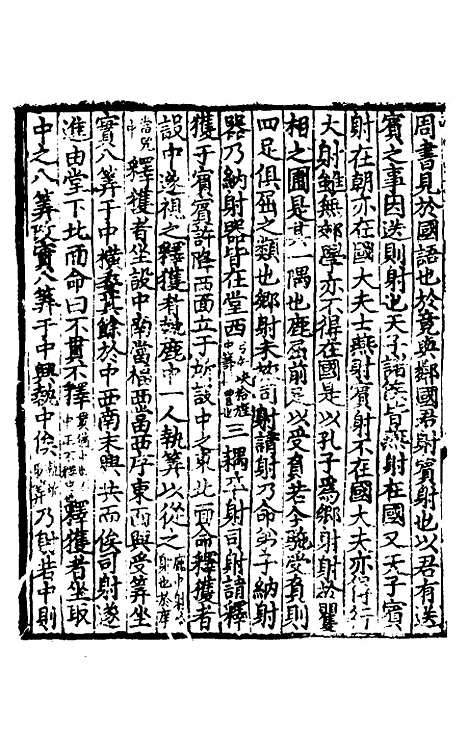 周書見於國語也於竟與鄰國君射賓射也以君有送
賓之事因送則射也天子諸侯皆燕射在國又天子賓
射在朝亦在國大夫士燕射賓射不在國大夫亦得行
大射雖無郊學亦不得在國是以孔子爲鄉射射於矍
相之圃是其一隅也鹿屈前足以受負若今駞受負則
四足俱屈之類也鄉射未　司射請射乃命弟子納射
器乃納射器皆在堂西三耦　射司射請釋
獲于賓賓許降西面立于所設中之東北面命釋獲者
設中遂視之釋獲者執鹿中一人執筭以從之
當兕中釋獲者坐設中南當楅西當西序東面興受筭坐
實八筭于中橫委其餘於中西南末興共而俟司射遂
進由堂下北面命曰不貫不釋釋獲者坐取
中之八筭改實八筭于中興執中俟乃射若中則